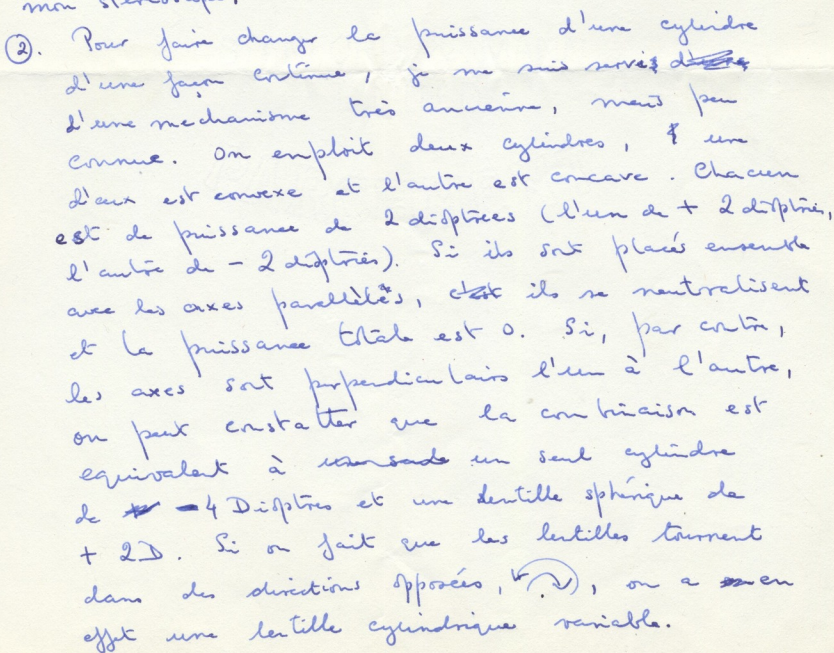 mon stéréoscope.
②. Pour faire changer la puissance d'une cylindre
d'une façon continue, je me suis servis
d'une mechanisme très ancienne, mais peu
connue. On emploit deux cylindres, une
d'eux est convexe et l'autre est concave. Chacun
est de puissance de 2 dioptrees (l'un de + 2 dioptries,
l'autre de - 2 dioptries). Si ils sont placés ensemble
avec les axes parallèles, ils se neutralisent
et la puissance totale est 0. Si, par contre,
les axes sont perpendiculairs l'un à l'autre,
on peut constatter que la combinaison est
equivalent à un seul cylindre
de -4 Dioptres et une lentille sphérique de
+ 2D. Si on fait que les lentilles tournent
dans des directions opposées, , on a en
effet une lentille cylindrique variable.